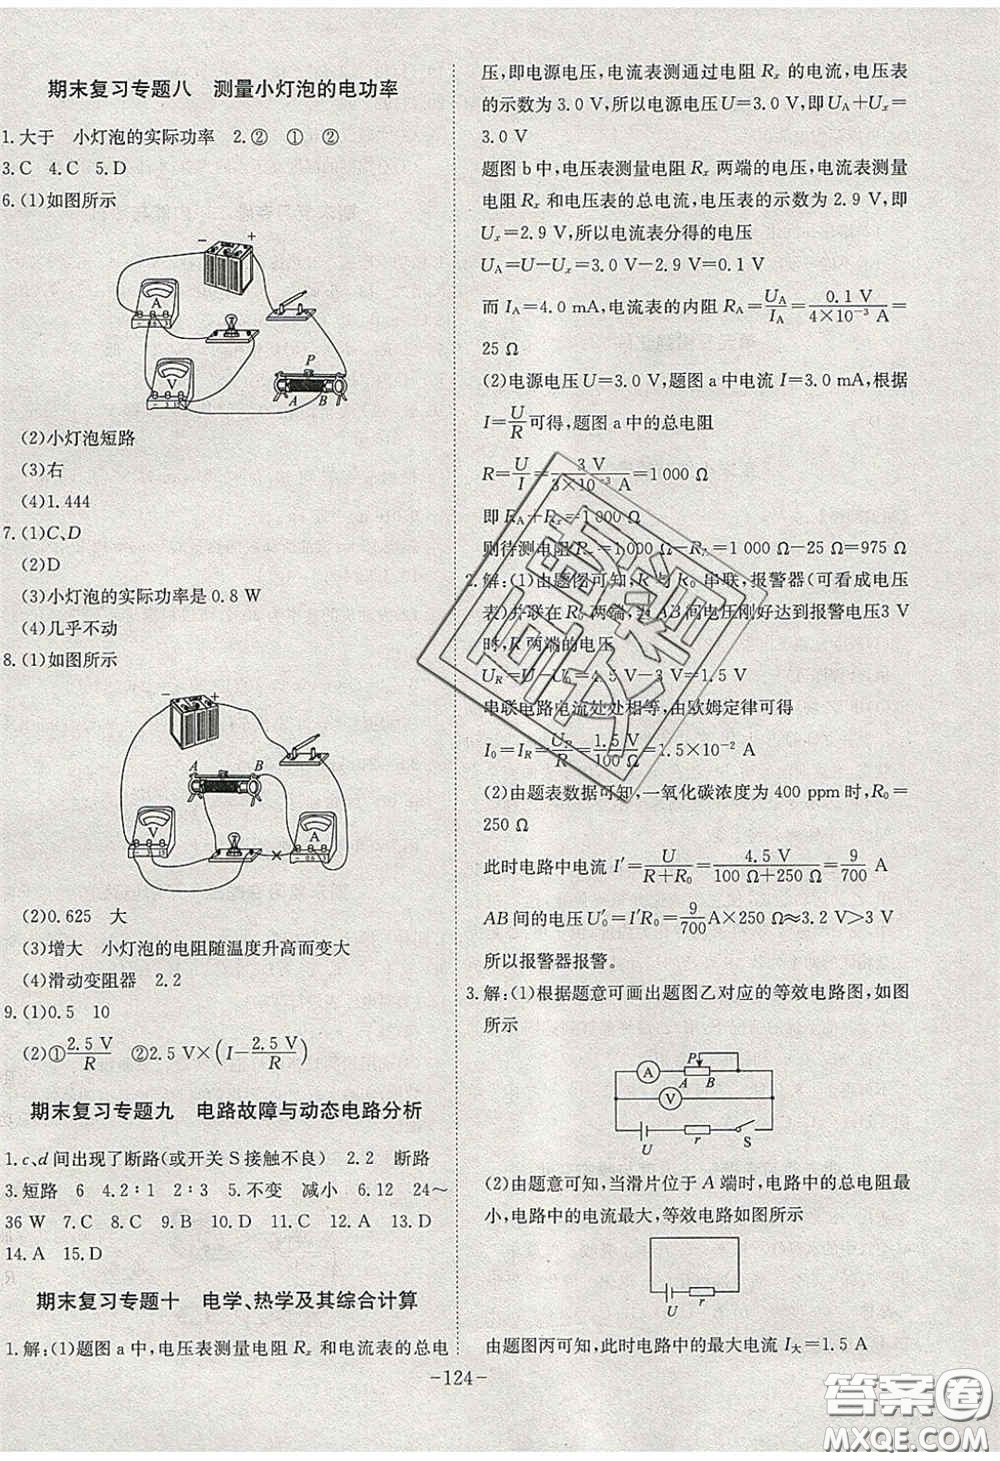 期末复习专题八　测量小灯泡的电功率
1.大于　小灯泡的实际功率　2.②　①　②
3.C　4.C　5.D
6.(1)如图所示
－　＋
A
V
P
A　B
(2)小灯泡短路
(3)右
(4)1.444
7.(1)C、D
(2)D
(3)小灯泡的实际功率是0.8 W
(4)几乎不动
8.(1)如图所示
＋　－
A　B
V
A
(2)0.625　大
(3)增大　小灯泡的电阻随温度升高而变大
(4)滑动变阻器　2.2
9.(1)0.5　10
(2)①2.5 V/R　②2.5 V×(I－2.5 V/R)
期末复习专题九　电路故障与动态电路分析
1.c、d间出现了断路(或开关S接触不良)　2.2　断路
3.短路　6　4.2∶1　2∶3　5.不变　减小　6.12　24～
36 W　7.C　8.C　9.B　10.D　11.C　12.A　13.D
14.A　15.D
期末复习专题十　电学、热学及其综合计算
1.解:(1)题图a中,电压表测量电阻Rx和电流表的总电
压,即电源电压,电流表测通过电阻Rx的电流,电压表
的示数为3.0 V,所以电源电压U＝3.0 V,即UA＋Ux＝
3.0 V
题图b中,电压表测量电阻Rx两端的电压,电流表测量
电阻Rx和电压表的总电流,电压表的示数为2.9 V,即
Ux＝2.9 V,所以电流表分得的电压
UA＝U－Ux＝3.0 V－2.9 V＝0.1 V
而IA＝4.0 mA,电流表的内阻RA＝UA/IA＝0.1 V/4×10⁻³ A＝
25 Ω
(2)电源电压U＝3.0 V,题图a中电流I＝3.0 mA,根据
I＝U/R可得,题图a中的总电阻
R＝U/I＝3 V/3×10⁻³ A＝1 000 Ω
即RA＋Rx＝1 000 Ω
则待测电阻Rx＝1 000 Ω－RA＝1 000 Ω－25 Ω＝975 Ω
2.解:(1)由题图可知,R与R0串联,报警器(可看成电压
表)并联在R0两端,当AB间电压刚好达到报警电压3 V
时,R两端的电压
UR＝U－U0＝4.5 V－3 V＝1.5 V
串联电路电流处处相等,由欧姆定律可得
I0＝IR＝UR/R＝1.5 V/100 Ω＝1.5×10⁻² A
(2)由题表数据可知,一氧化碳浓度为400 ppm时,R0＝
250 Ω
此时电路中电流I′＝U/R＋R0＝4.5 V/100 Ω＋250 Ω＝9/700 A
AB间的电压U0′＝I′R0＝9/700 A×250 Ω≈3.2 V＞3 V
所以报警器报警。
3.解:(1)根据题意可画出题图乙对应的等效电路图,如图
所示
A
P
A　B
V
U　r　S
(2)由题意可知,当滑片位于A端时,电路中的总电阻最
小,电路中的电流最大,等效电路如图所示
U　r
由题图丙可知,此时电路中的最大电流I大＝1.5 A
－124－
答案圈
MXQE.COM